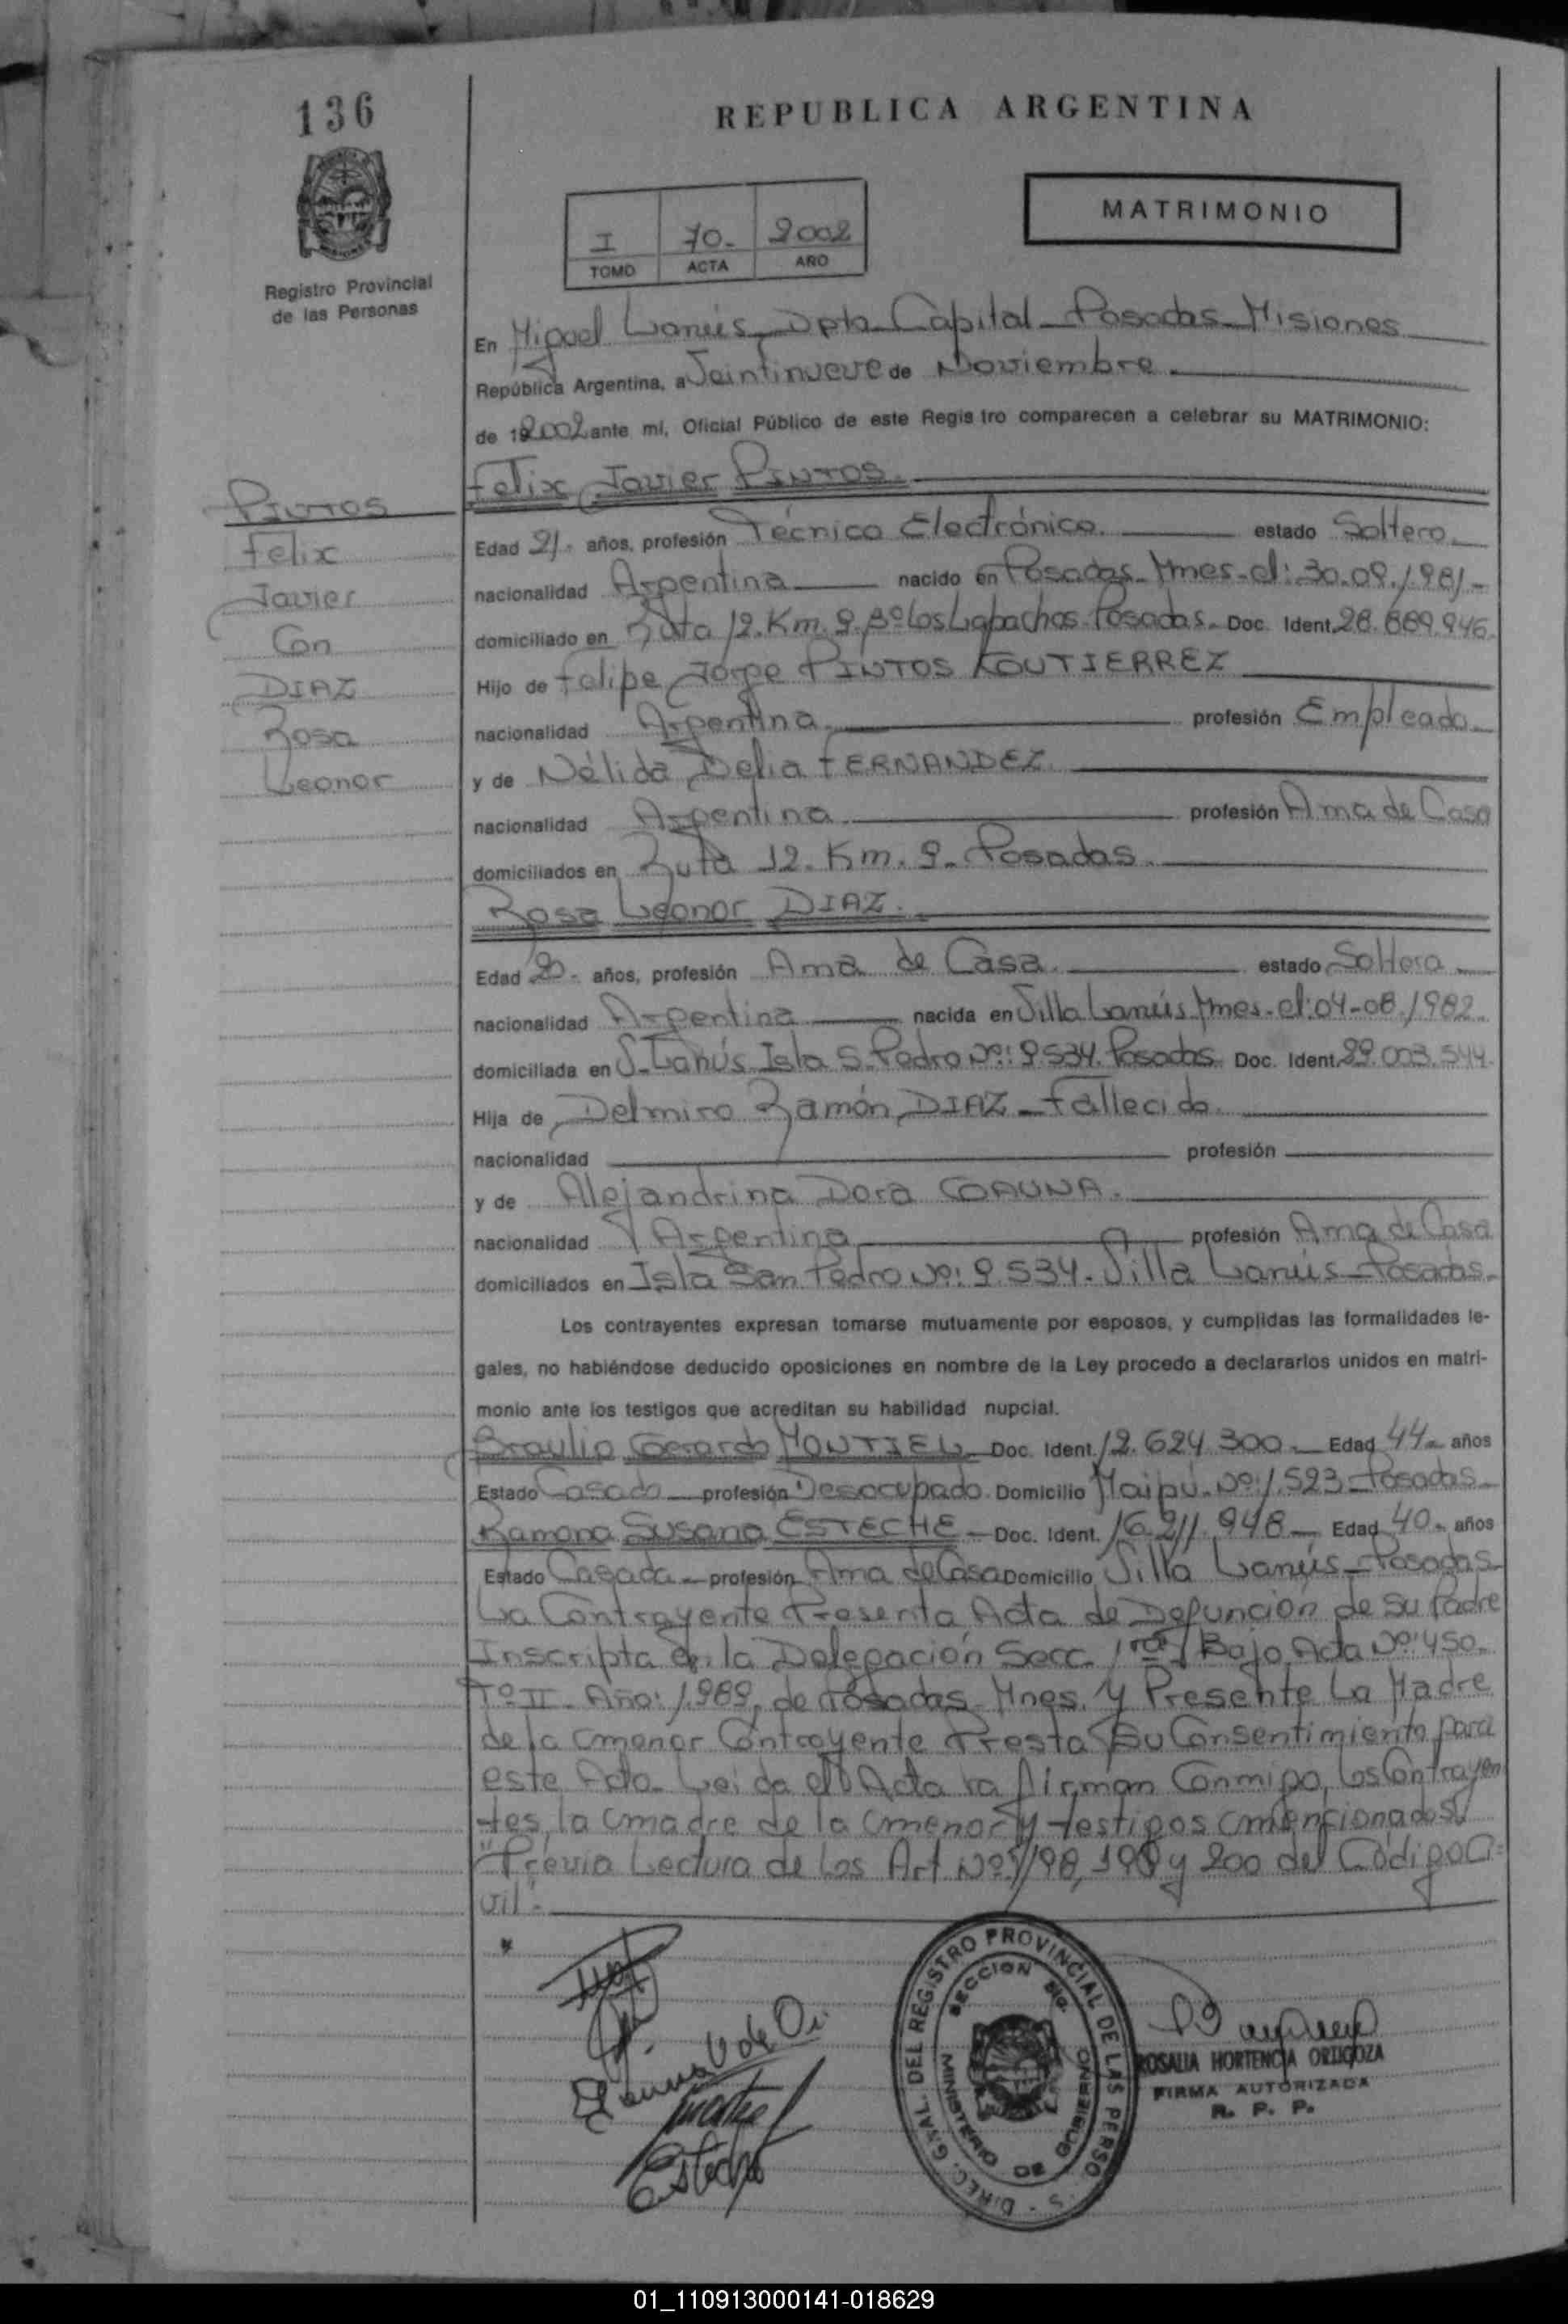 136
REPUBLICA ARGENTINA
MATRIMONIO
I 70.- 2002
TOMO ACTA AÑO
Registro Provincial
de las Personas
En Miguel Lanús Dpto Capital Posadas Misiones
República Argentina, a Veintinueve de Noviembre
de 192002 ante mi, Oficial Público de este Regis tro comparecen a celebrar su MATRIMONIO:
Felix Javier PINTOS.
PINTOS
Felix
Javier
Con
DIAZ
Rosa
Leonor
Edad 21.- años, profesión Técnico Electrónico. estado Soltero
nacionalidad Argentina nacido en Posadas-Mnes-el: 30.09.1981-
domiciliado en Ruta 12.Km. 9. Bº Los Lapachos-Posadas. Doc. Ident. 28.889.946
Hijo de Felipe Jorge PINTOS GUTIERREZ
nacionalidad Argentina profesión Empleado
y de Nélida Delia FERNANDEZ.
nacionalidad Argentina profesión Ama de Casa
domiciliados en Ruta 12. Km. 9- Posadas
Rosa Leonor DIAZ.
Edad 20.- años, profesión Ama de Casa. estado Soltera
nacionalidad Argentina nacida en Villa Lanús Mnes-el: 04-08-1982
domiciliada en V. Lanús Isla S. Pedro Nº: 9.534. Posadas Doc. Ident. 29.003.544
Hija de Delmiro Ramón DIAZ - Fallecido
nacionalidad profesión
y de Alejandrina Dora GAUNA.
nacionalidad Argentina profesión Ama de Casa
domiciliados en Isla San Pedro Nº: 9.534- Villa Lanús-Posadas-
Los contrayentes expresan tomarse mutuamente por esposos, y cumplidas las formalidades le-
gales, no habiéndose deducido oposiciones en nombre de la Ley procedo a declararlos unidos en matri-
monio ante los testigos que acreditan su habilidad nupcial.
Braulio Gerardo MONTIEL Doc. Ident. 12.624.300.- Edad 44- años
Estado Casado profesión Desocupado Domicilio Maipú-Nº: 1.523-Posadas
Ramona Susana ESTECHE - Doc. Ident. 16.211.948- Edad 40- años
Estado Casada- profesión Ama de Casa Domicilio Villa Lanús-Posadas
La Contrayente Presenta Acta de Defunción de Su Padre
Inscripta en la Delegación Secc. 1ra Bajo Acta Nº: 450-
Tº II- Año: 1.989, de Posadas-Mnes. y Presente La Madre
de la menor Contrayente Presta Su Consentimiento para
este Acto- Leida el Acta la firman Conmigo, los Contrayen
tes, la madre de la menor y testigos mencionados
"Previa Lectura de los Art Nº: 198, 199 y 200 del Código Ci-
vil".-
Esteche
DIREC. GRAL. DEL REGISTRO PROVINCIAL DE LAS PERSO S
MINISTERIO DE GOBIERNO
SECCION
ROSALIA HORTENCIA ORTIGOZA
FIRMA AUTORIZADA
R. P. P.
01_110913000141-018629